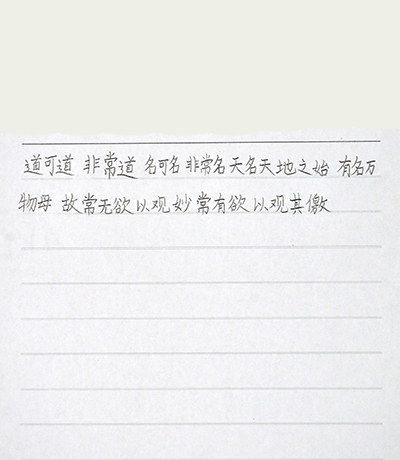 道可道 非常道 名可名 非常名天名天地之始 有名万
物母 故常无欲以观妙常有欲以观其儌